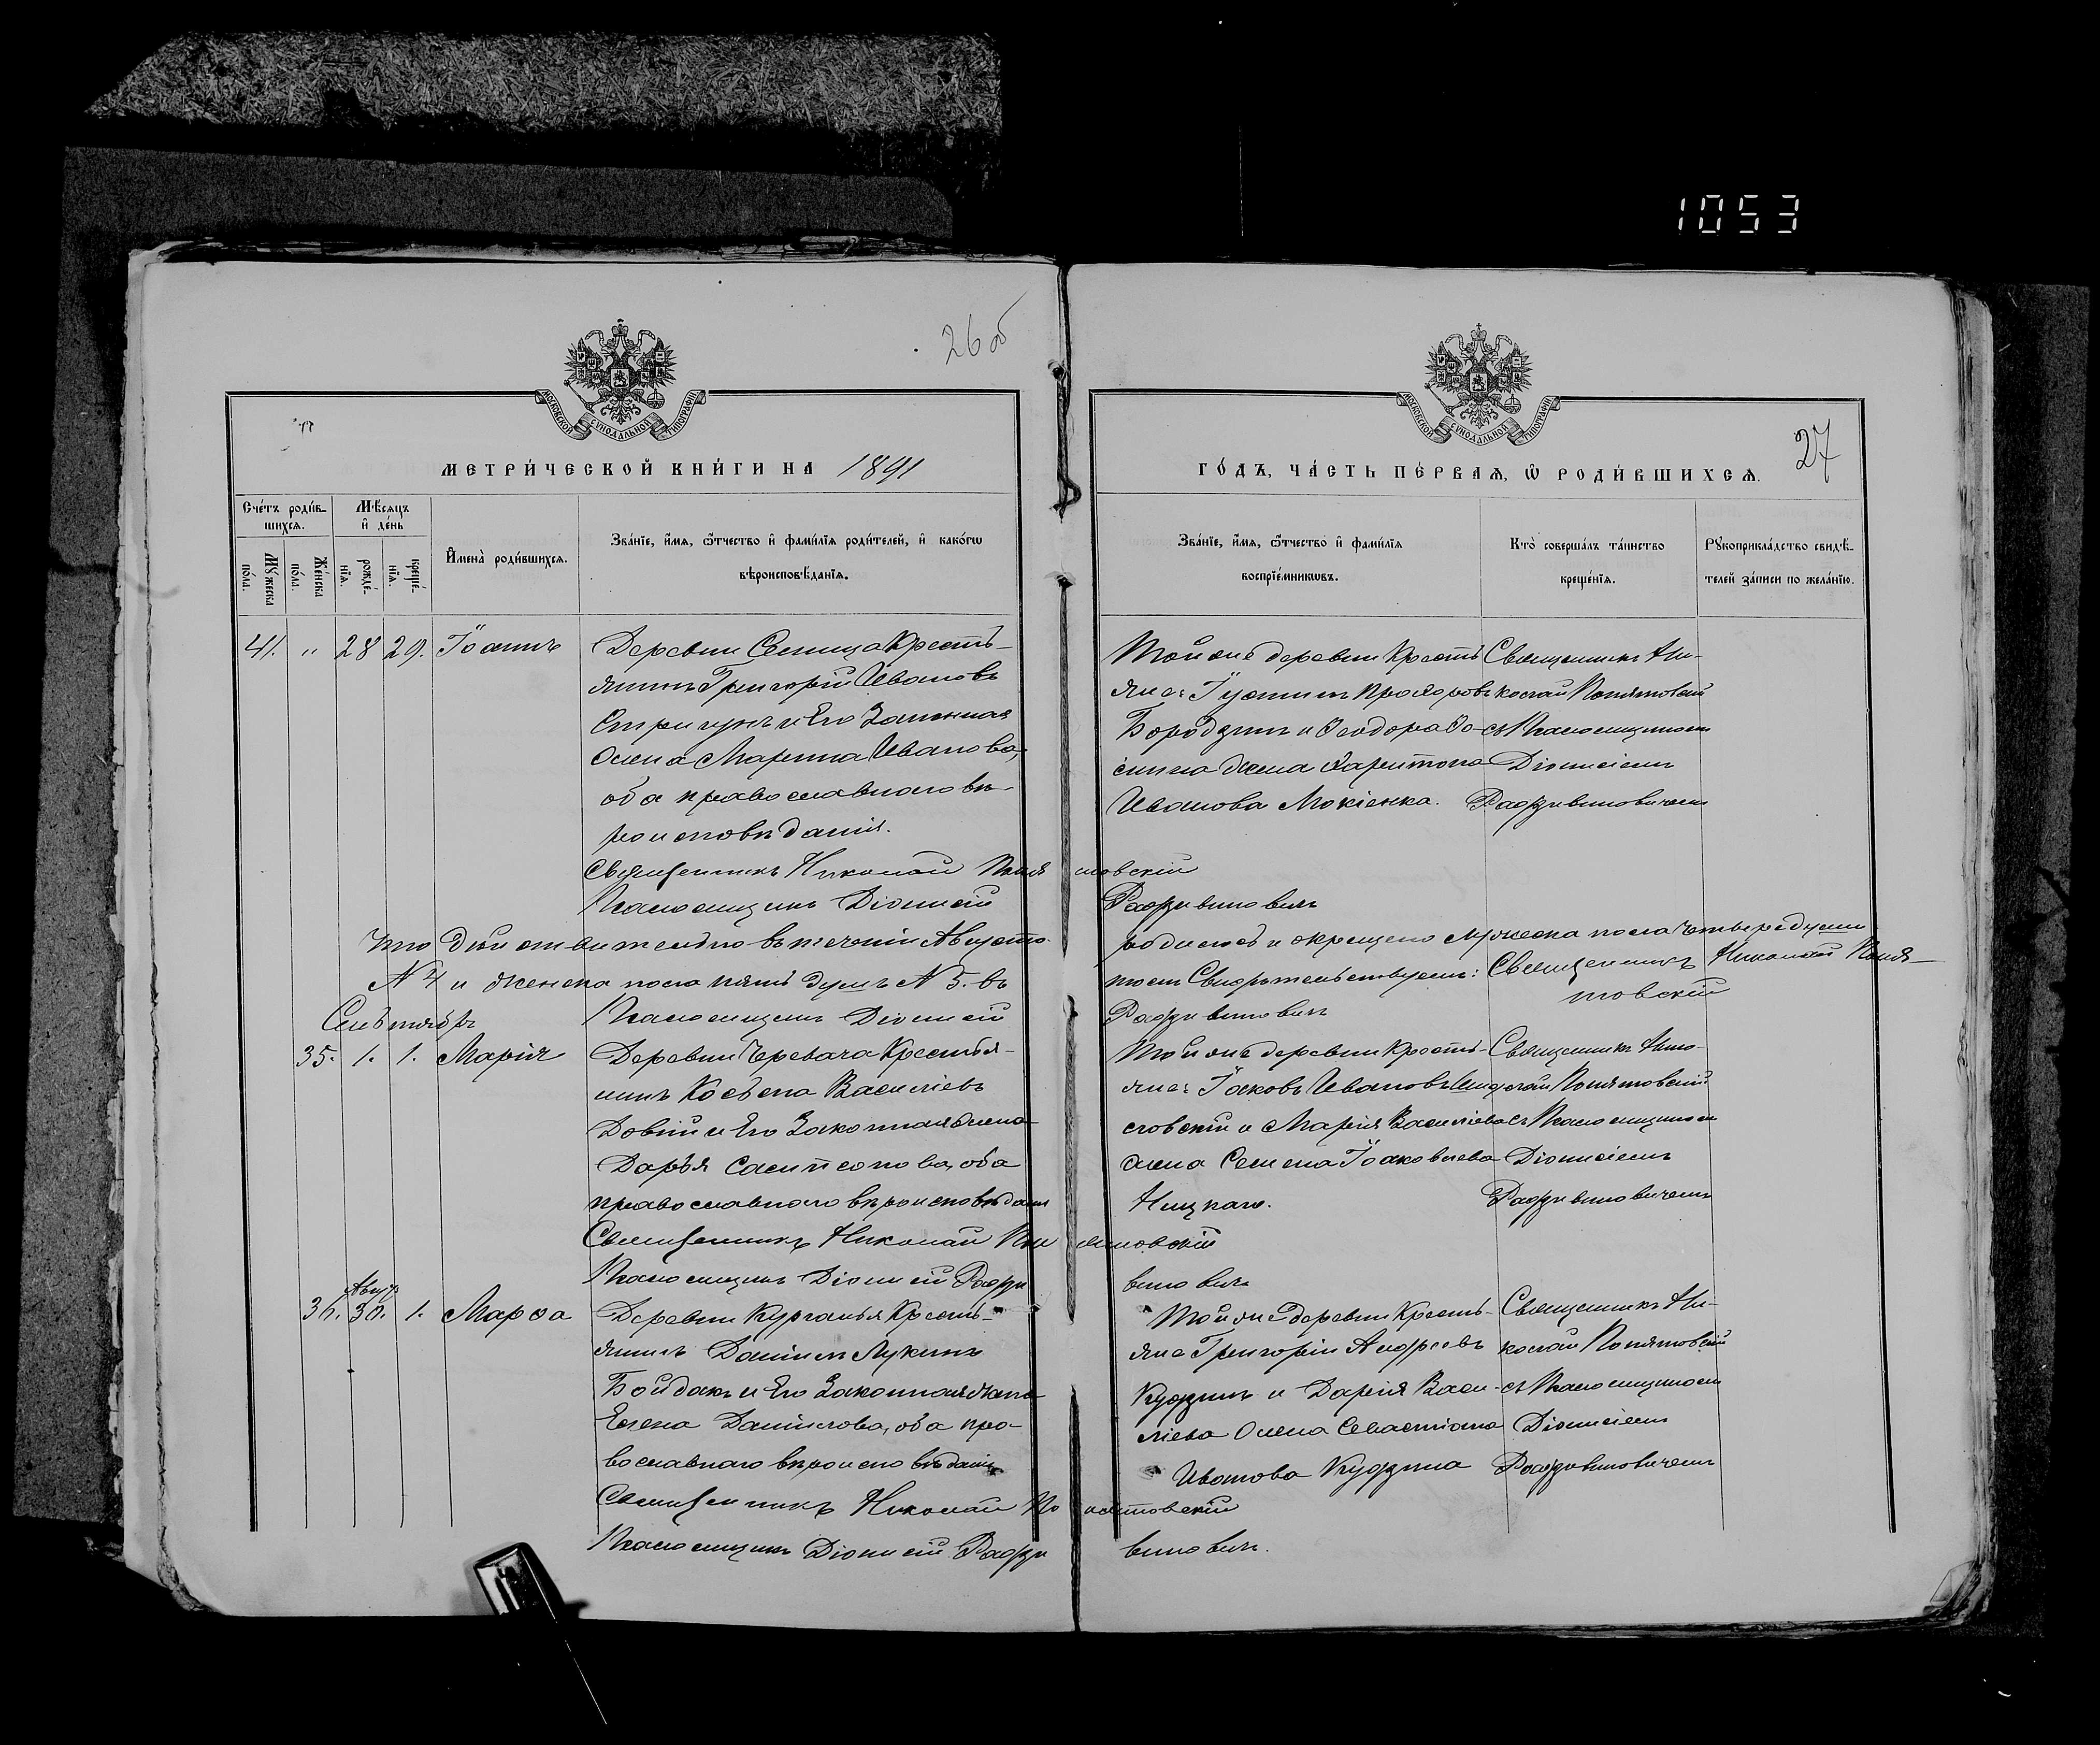 1053
26 об
27
МОСКОВСКОЙ СУНОДАЛЬНОЙ ТИПОГРАФІИ
МОСКОВСКОЙ СУНОДАЛЬНОЙ ТИПОГРАФІИ
МЕТРИ́ЧЕСКОЙ КНИ́ГИ НА 1891
ГО́ДЪ, ЧА́СТЬ ПЕ́РВАѦ, Ѡ РОДИ́ВШИХСѦ.
Счетъ роди́в-
шихсѧ.
Мѣ́сѧцъ
и҆ де́нь
Мꙋжеска
по́ла.
Же́нска
по́ла.
рожде́-
нїѧ.
креще́-
нїѧ.
И҆мена̀ роди́вшихсѧ.
Зва́нїе, и҆́мѧ, ѻ҆́тчество и҆ фами́лїѧ роди́телей, и҆ како́гѡ
вѣроисповѣ́данїѧ.
Зва́нїе, и҆́мѧ, ѻ҆́тчество и҆ фами́лїѧ
воспрїе́мникѡвъ.
Кто̀ соверша́лъ та́инство
креще́нїѧ.
Рꙋкоприкла́дство свидѣ́-
телей за́писи по жела́нїю.
41. " 28 29. Іоаннъ
Деревни Сеница Кресть-
янинъ Григорій Ивановъ
Стригунъ и Его Законная
жена Марина Иванова,
оба православнаго вѣ-
роисповѣданія.
Тойже деревни Кресть
яне: Іустинъ Прохоровъ
Бородзинъ и Ѳеодора Ѳо-
жена Харитона
Иванова Мокіенка.
Священникъ Ни-
колай Понятовскій
съ Псаломщикомъ
Діонисіемъ
Радзивиновичемъ
Священникъ Николай Понятовскій
Псаломщикъ Діонисій Радзивиновичъ
Что дѣйствительно въ теченіи Августа родилось и окрещено мужеска пола четыре души
N 4 и женска пола пять душъ N 5. въ томъ Свидѣтельствуемъ: Священникъ Николай Поня-
товскій
Псаломщикъ Діонисій Радзивиновичъ
Сентябрь
35. 1. 1. Марія
Деревни Черевача Крестья-
нинъ Косьма Василіевъ
Довгій и Его Законная жена
Дарья Сампсонова, оба
православнаго вѣроисповѣданія
Тойже деревни Кресть-
яне: Іаковъ Ивановъ
и Марія Василіева
жена Семена Іаковлева
Ницкаго.
Священникъ Нико-
лай Понятовскій
съ Псаломщикомъ
Діонисіемъ
Радзивиновичемъ
Священникъ Николай Понятовскій
Псаломщикъ Діонисій Радзивиновичъ
Авгус.
36. 30. 1. Марѳа
Деревни Курганья Кресть-
янинъ Даніилъ Лукинъ
Бойдакъ и Его Законная жена
Елена Даніилова, оба пра-
вославнаго вѣроисповѣданія
Тойже деревни Кресть-
яне Григорій Андреевъ
Кудзинъ и Дарія Васи-
ліева жена Севастіана
Иванова Кудзина
Священникъ Ни-
колай Понятовскій
съ Псаломщикомъ
Діонисіемъ
Радзивиновичемъ
Священникъ Николай Понятовскій
Псаломщикъ Діонисій Радзивиновичъ.